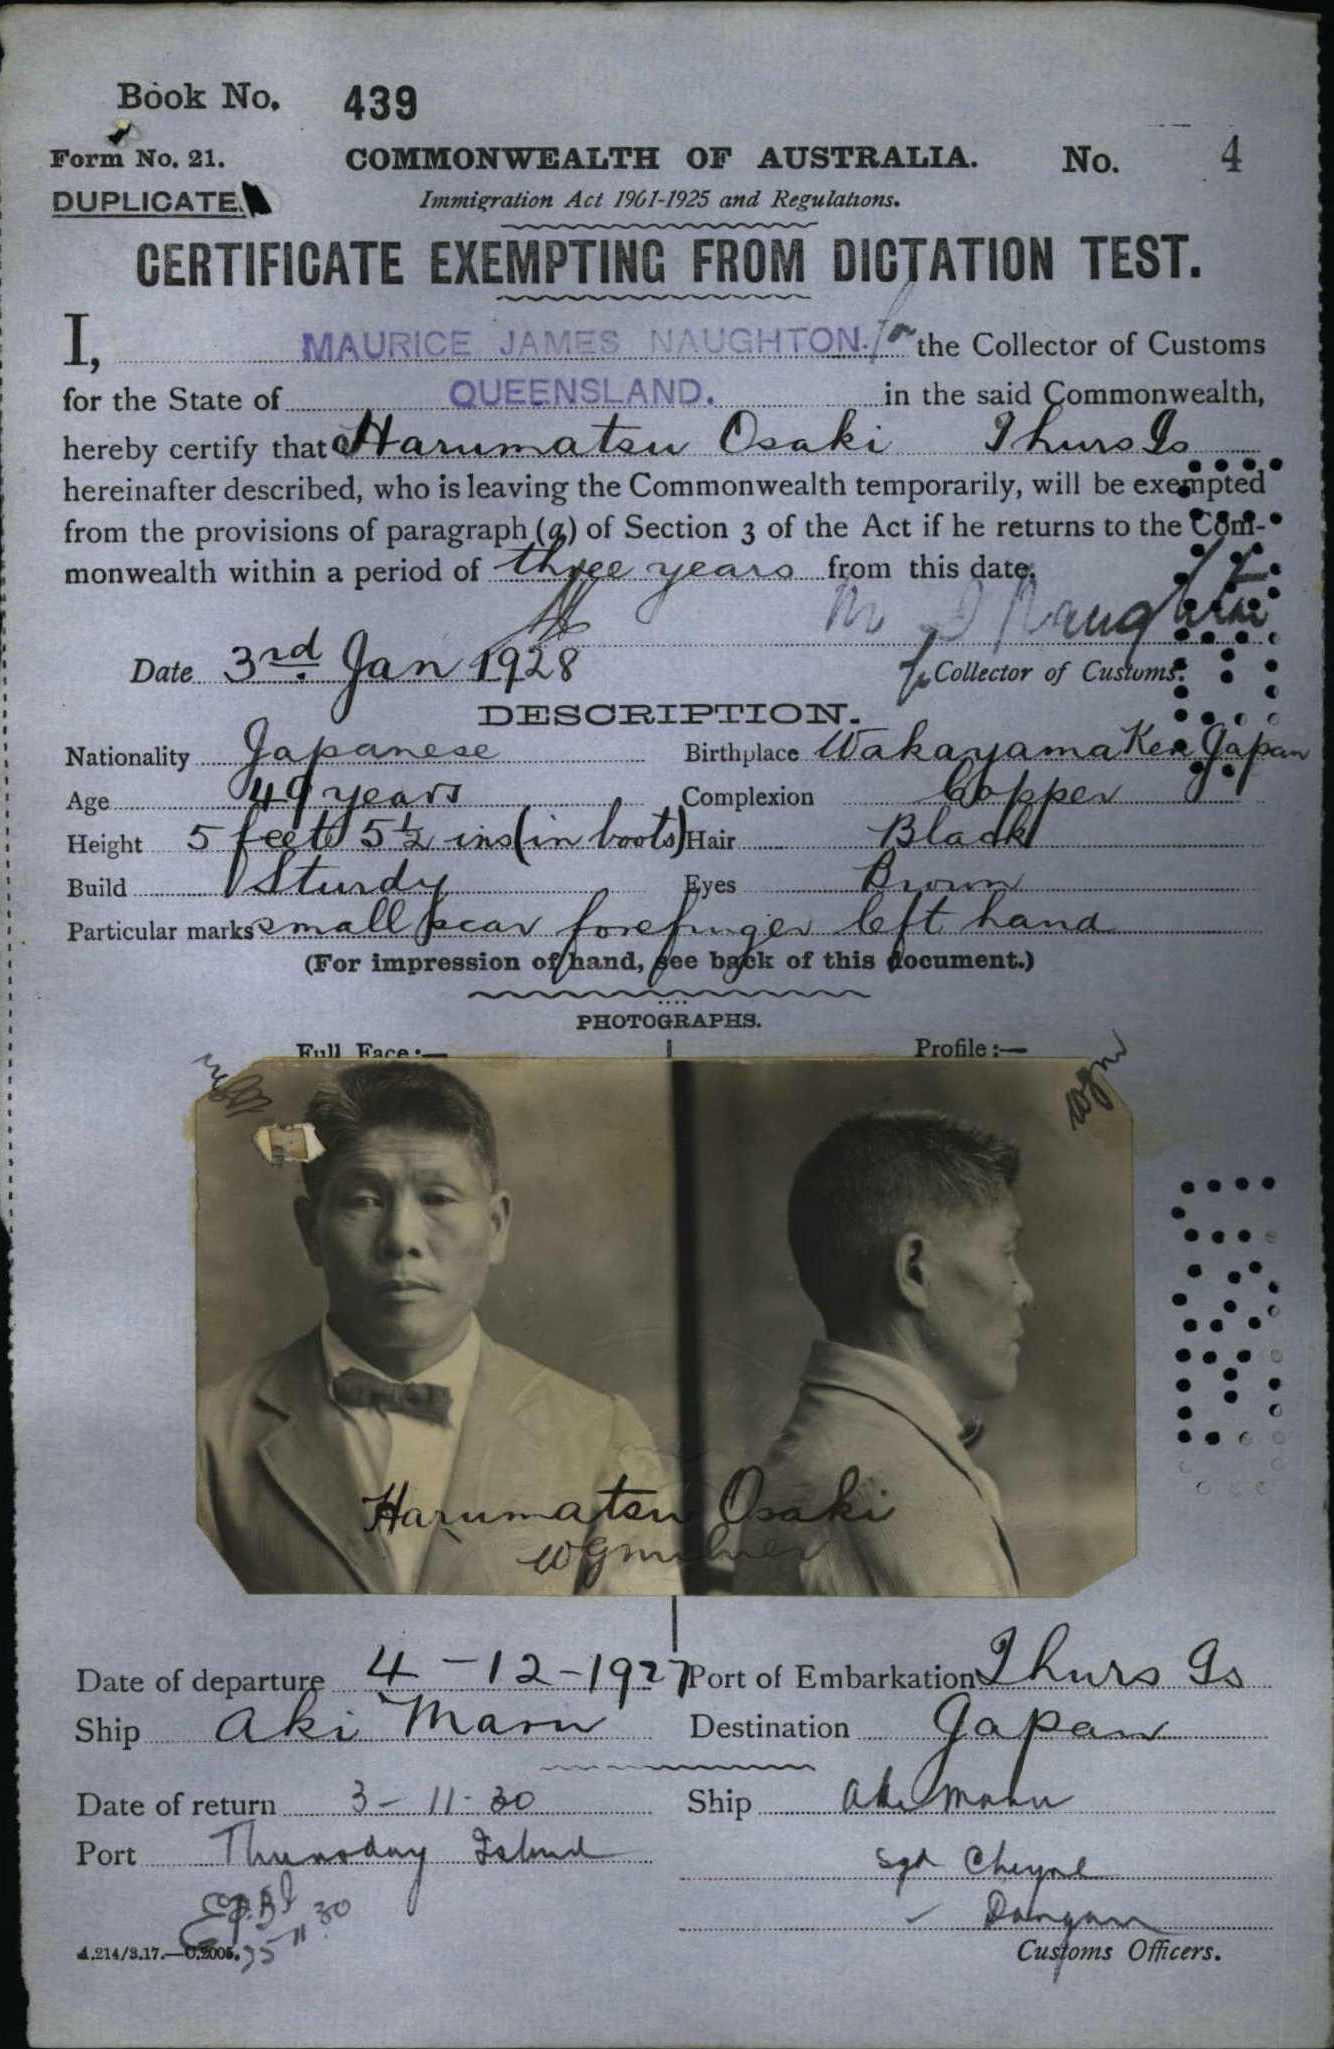 Book No. 439
Form No. 21. COMMONWEALTH OF AUSTRALIA. No. 4
DUPLICATE. Immigration Act 1901-1925 and Regulations.
CERTIFICATE EXEMPTING FROM DICTATION TEST.
I, MAURICE JAMES NAUGHTON. for the Collector of Customs
for the State of QUEENSLAND. in the said Commonwealth,
hereby certify that Harumatsu Osaki Thurs Is
hereinafter described, who is leaving the Commonwealth temporarily, will be exempted
from the provisions of paragraph (a) of Section 3 of the Act if he returns to the Com-
monwealth within a period of three years from this date.
M J Naughton
Date 3rd. Jan 1928 for Collector of Customs.
DESCRIPTION.
Nationality Japanese Birthplace Wakayama Ken Japan
Age 49 years Complexion Copper
Height 5 feet 5½ ins (in boots) Hair Black
Build Sturdy Eyes Brown
Particular marks small scar forefinger left hand
(For impression of hand, see back of this document.)
PHOTOGRAPHS.
Full Face:— Profile:—
wgm wgm
Harumatsu Osaki
WG Milner
Date of departure 4-12-1927 Port of Embarkation Thurs Is
Ship Aki Maru Destination Japan
Date of return 3-11-30 Ship Aki Maru
Port Thursday Island
Sgd Cheyne
Customs Officers.